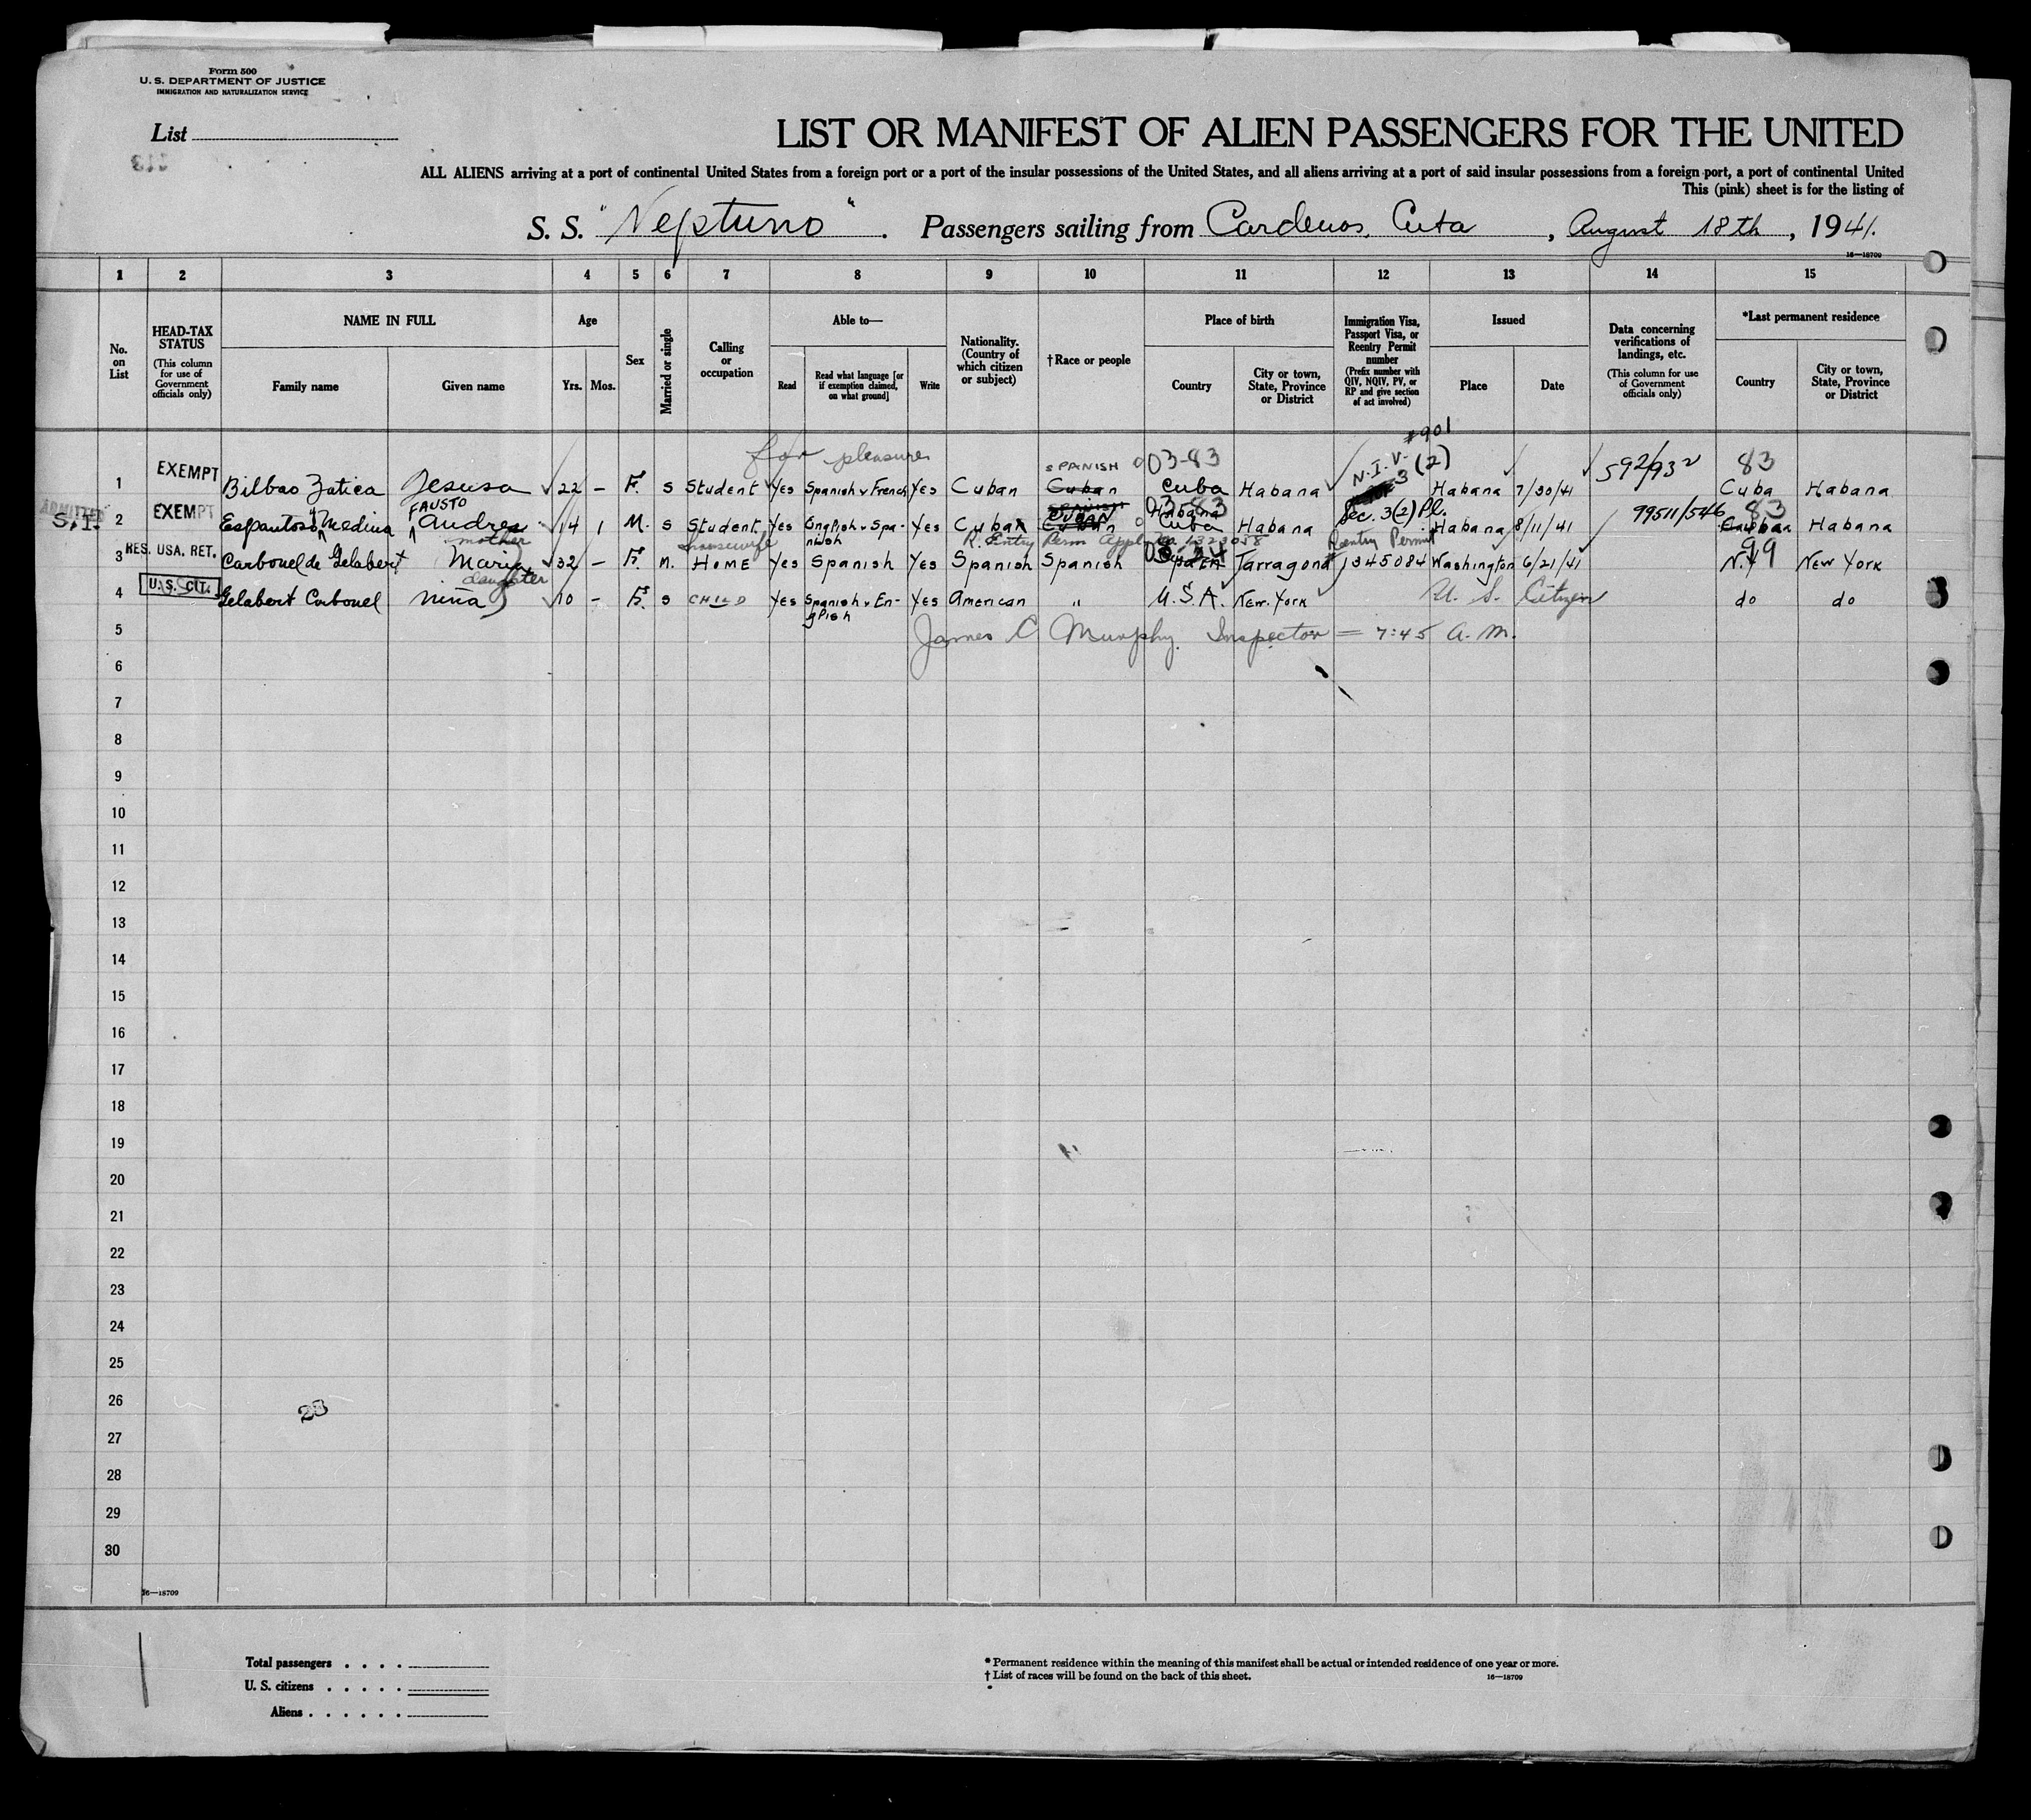 Form 500
U. S. DEPARTMENT OF JUSTICE
IMMIGRATION AND NATURALIZATION SERVICE
List
113
LIST OR MANIFEST OF ALIEN PASSENGERS FOR THE UNITED
ALL ALIENS arriving at a port of continental United States from a foreign port or a port of the insular possessions of the United States, and all aliens arriving at a port of said insular possessions from a foreign port, a port of continental United
This (pink) sheet is for the listing of
S. S. "Neptuno". Passengers sailing from Cardenas, Cuba, August 18th, 1941.
16—18709
1 2 3 4 5 6 7 8 9 10 11 12 13 14 15
No. on List
HEAD-TAX STATUS (This column for use of Government officials only)
NAME IN FULL
Family name Given name
Age
Yrs. Mos.
Sex
Married or single
Calling or occupation
Able to—
Read Read what language [or if exemption claimed, on what ground] Write
Nationality. (Country of which citizen or subject)
†Race or people
Place of birth
Country City or town, State, Province or District
Immigration Visa, Passport Visa, or Reentry Permit number (Prefix number with QIV, NQIV, PV, or RP and give section of act involved)
Issued
Place Date
Data concerning verifications of landings, etc. (This column for use of Government officials only)
*Last permanent residence
Country City or town, State, Province or District
for pleasure SPANISH 03-83 #901 N.I.V. 3 (2) 592/932 83
1 EXEMPT Bilbao Zatica Jesusa 22 – F. S Student Yes Spanish y French Yes Cuban Cuban Cuba Habana Habana 7/30/41 Cuba Habana
ADMITTED FAUSTO SPANISH 03-83 Habana 83
S.I. 2 EXEMPT Espantoso y Medina Andres 14 1 M. S Student Yes English y Spanish Yes Cuban Cuban Cuba Habana Sec. 3(2) Pl. Habana 8/11/41 99511/546 Cuba Habana
mother housewife R. Entry Perm Appl No 1323058 Rentry Permit 99
3 RES. USA. RET. Carbonel de Gelabert Maria 32 – F. M. HOME Yes Spanish Yes Spanish Spanish Spain Tarragona 1345084 Washington 6/21/41 N.Y New York
daughter
4 U.S. CIT. Gelabert Carbonel Niña 10 – F. S CHILD Yes Spanish y English Yes American " U.S.A. New. York U. S. Citizen do do
5 James C Murphy Inspector = 7:45 a.m.
6
7
8
9
10
11
12
13
14
15
16
17
18
19
20
21
22
23
24
25
26
23
27
28
29
30
16—18709
Total passengers . . . .
U. S. citizens . . . . .
Aliens . . . . . .
* Permanent residence within the meaning of this manifest shall be actual or intended residence of one year or more.
† List of races will be found on the back of this sheet.
16—18709